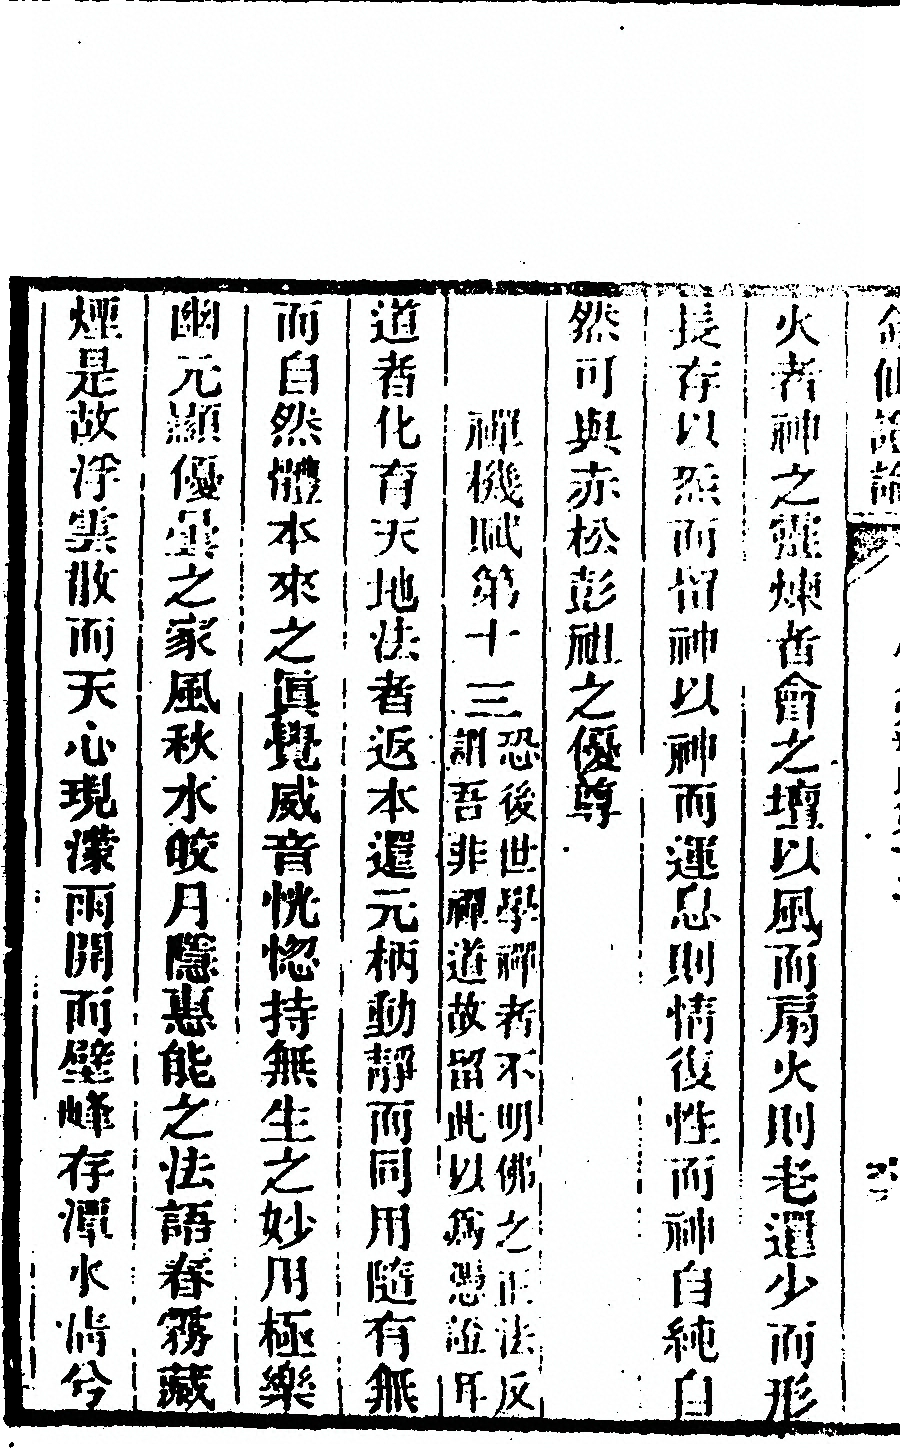 金仙證論
火者神之靈煉者會之壇以風而扇火則老還少而形
長存以炁而留神以神而運息則情復性而神自純自
然可與赤松彭祖之優尊
禪機賦第十三
恐後世學禪者不明佛之正法反
謂吾非禪道故留此以為憑證耳
道者化育天地法者返本還元柄動靜而同用隨有無
而自然體本來之眞覺威音恍惚持無生之妙用極樂
幽元顯優曇之家風秋水皎月隱惠能之法語春霧藏
煙是故浮雲散而天心現濛雨開而壁峰存潭水清兮